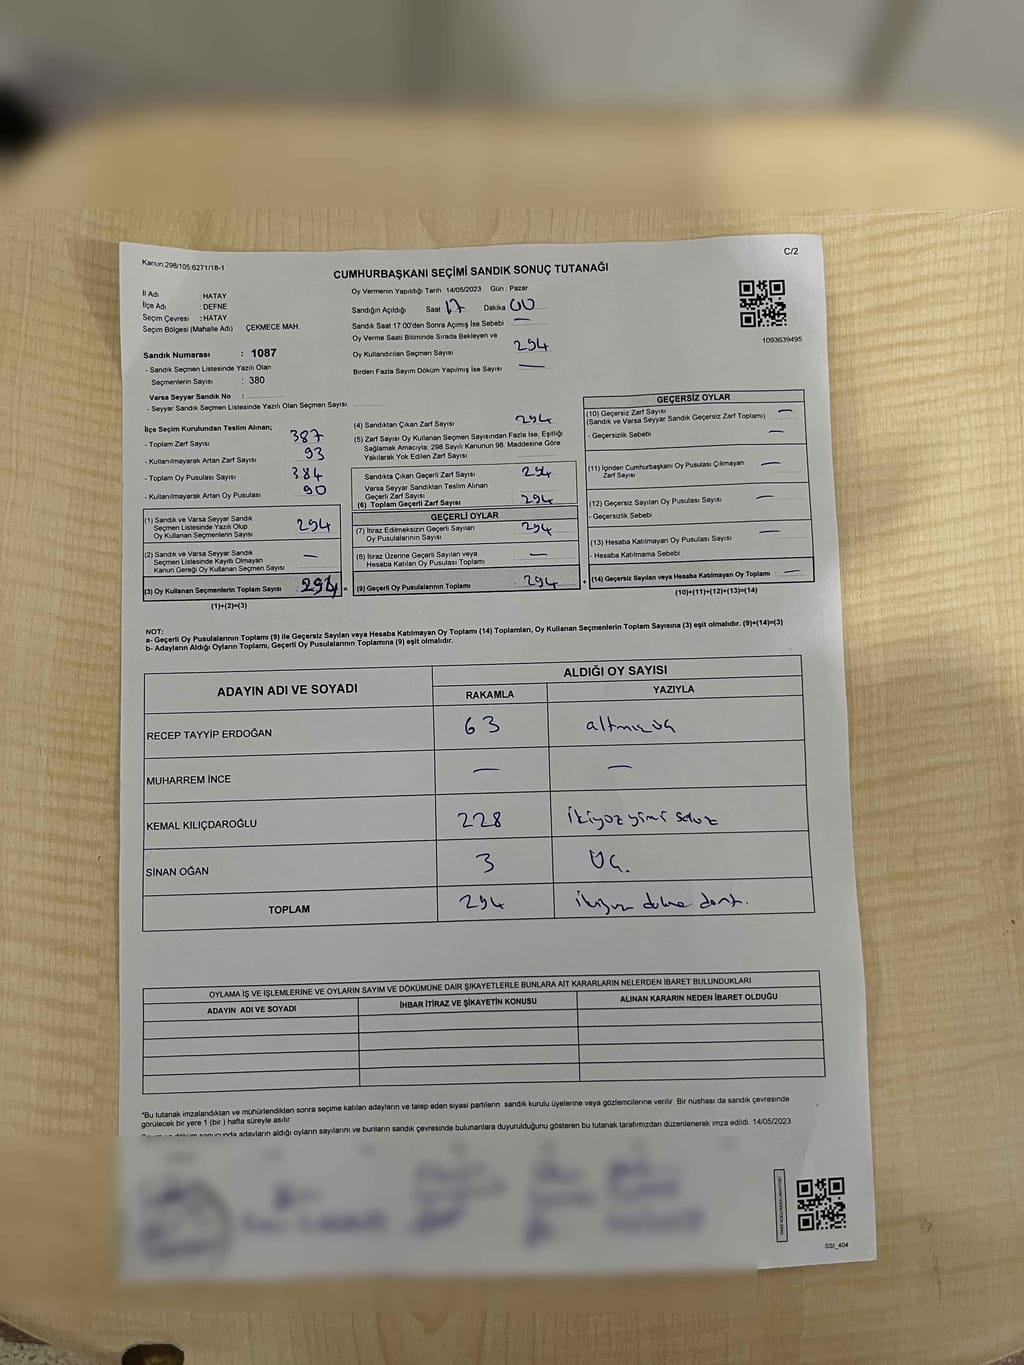 Kanun:298/105;6271/18-1
C/2
CUMHURBAŞKANI SEÇİMİ SANDIK SONUÇ TUTANAĞI
İl Adı : HATAY
İlçe Adı : DEFNE
Seçim Çevresi : HATAY
Seçim Bölgesi (Mahalle Adı) ÇEKMECE MAH.
Sandık Numarası : 1087
- Sandık Seçmen Listesinde Yazılı Olan
Seçmenlerin Sayısı : 380
Varsa Seyyar Sandık No :
- Seyyar Sandık Seçmen Listesinde Yazılı Olan Seçmen Sayısı:
Oy Vermenin Yapıldığı Tarih :14/05/2023 Gün : Pazar
Sandığın Açıldığı Saat 17 Dakika 00
Sandık Saat 17:00'den Sonra Açımış İse Sebebi : —
Oy Verme Saati Bitiminde Sırada Bekleyen ve
Oy Kullandırılan Seçmen Sayısı 294
Birden Fazla Sayım Döküm Yapılmış İse Sayısı : —
1093639495
İlçe Seçim Kurulundan Teslim Alınan;
- Toplam Zarf Sayısı 387
- Kullanılmayarak Artan Zarf Sayısı 93
- Toplam Oy Pusulası Sayısı 384
- Kullanılmayarak Artan Oy Pusulası 90
(1) Sandık ve Varsa Seyyar Sandık
Seçmen Listesinde Yazılı Olup
Oy Kullanan Seçmenlerin Sayısı 294
(2) Sandık ve Varsa Seyyar Sandık
Seçmen Listesinde Kayıtlı Olmayan
Kanun Gereği Oy Kullanan Seçmen Sayısı —
(3) Oy Kullanan Seçmenlerin Toplam Sayısı : 294 =
(1)+(2)=(3)
(4) Sandıktan Çıkan Zarf Sayısı 294
(5) Zarf Sayısı Oy Kullanan Seçmen Sayısından Fazla İse, Eşitliği
Sağlamak Amacıyla; 298 Sayılı Kanunun 98. Maddesine Göre
Yakılarak Yok Edilen Zarf Sayısı
Sandıkta Çıkan Geçerli Zarf Sayısı 294
Varsa Seyyar Sandıktan Teslim Alınan
Geçerli Zarf Sayısı
(6) Toplam Geçerli Zarf Sayısı 294
GEÇERLİ OYLAR
(7) İtiraz Edilmeksizin Geçerli Sayılan
Oy Pusulalarının Sayısı 294
(8) İtiraz Üzerine Geçerli Sayılan veya
Hesaba Katılan Oy Pusulası Toplamı —
(9) Geçerli Oy Pusulalarının Toplamı : 294 +
GEÇERSİZ OYLAR
(10) Geçersiz Zarf Sayısı —
(Sandık ve Varsa Seyyar Sandık Geçersiz Zarf Toplamı)
- Geçersizlik Sebebi —
(11) İçinden Cumhurbaşkanı Oy Pusulası Çıkmayan
Zarf Sayısı —
(12) Geçersiz Sayılan Oy Pusulası Sayısı —
- Geçersizlik Sebebi
(13) Hesaba Katılmayan Oy Pusulası Sayısı —
- Hesaba Katılmama Sebebi
(14) Geçersiz Sayılan veya Hesaba Katılmayan Oy Toplamı —
(10)+(11)+(12)+(13)=(14)
NOT:
a- Geçerli Oy Pusulalarının Toplamı (9) ile Geçersiz Sayılan veya Hesaba Katılmayan Oy Toplamı (14) Toplamları, Oy Kullanan Seçmenlerin Toplam Sayısına (3) eşit olmalıdır. (9)+(14)=(3)
b- Adayların Aldığı Oyların Toplamı, Geçerli Oy Pusulalarının Toplamına (9) eşit olmalıdır.
ADAYIN ADI VE SOYADI
ALDIĞI OY SAYISI
RAKAMLA YAZIYLA
RECEP TAYYİP ERDOĞAN 63 altmış üç
MUHARREM İNCE — —
KEMAL KILIÇDAROĞLU 228 ikiyüz yirmi sekiz
SİNAN OĞAN 3 üç.
TOPLAM 294 ikiyüz doksan dört.
OYLAMA İŞ VE İŞLEMLERİNE VE OYLARIN SAYIM VE DÖKÜMÜNE DAİR ŞİKAYETLERLE BUNLARA AİT KARARLARIN NELERDEN İBARET BULUNDUKLARI
ADAYIN ADI VE SOYADI İHBAR İTİRAZ VE ŞİKAYETİN KONUSU ALINAN KARARIN NEDEN İBARET OLDUĞU
*Bu tutanak imzalandıktan ve mühürlendikten sonra seçime katılan adayların ve talep eden siyasi partilerin sandık kurulu üyelerine veya gözlemcilerine verilir. Bir nüshası da sandık çevresinde
görülecek bir yere 1 (bir ) hafta süreyle asılır.
adayların aldığı oyların sayılarını ve bunların sandık çevresinde bulunanlara duyurulduğunu gösteren bu tutanak tarafımızdan düzenlenerek imza edildi. 14/05/2023
SSI_404